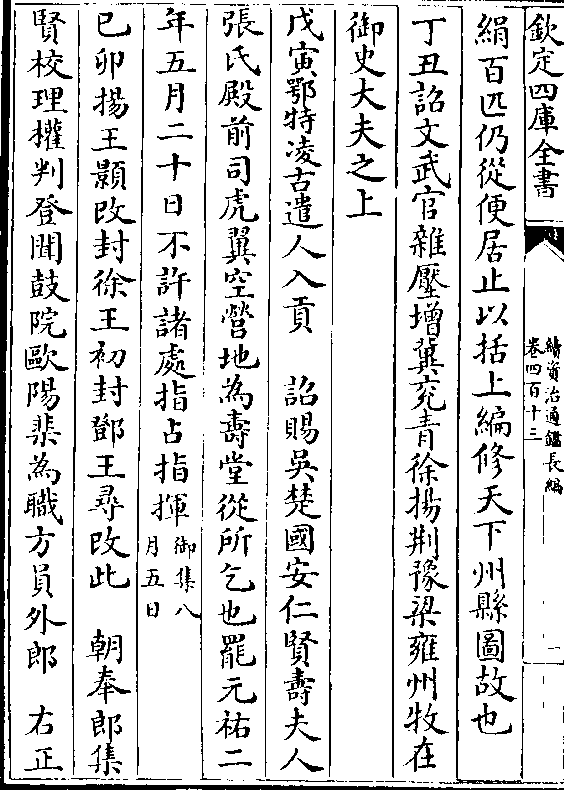 欽定四庫全書
續資治通鑑長編
卷四百十三
二
絹百匹仍從便居止以括上編修天下州縣圖故也
丁丑詔文武官雜壓增冀兖青徐揚荆豫梁雍州牧在
御史大夫之上
戊寅鄂特凌古遣人入貢　詔賜吳楚國安仁賢壽夫人
張氏殿前司虎翼空營地為壽堂從所乞也罷元祐二
年五月二十日不許諸處指占指揮御集八月五日
己卯揚王顥改封徐王初封鄧王尋改此　朝奉郎集
賢校理權判登聞鼓院歐陽棐為職方員外郎　右正